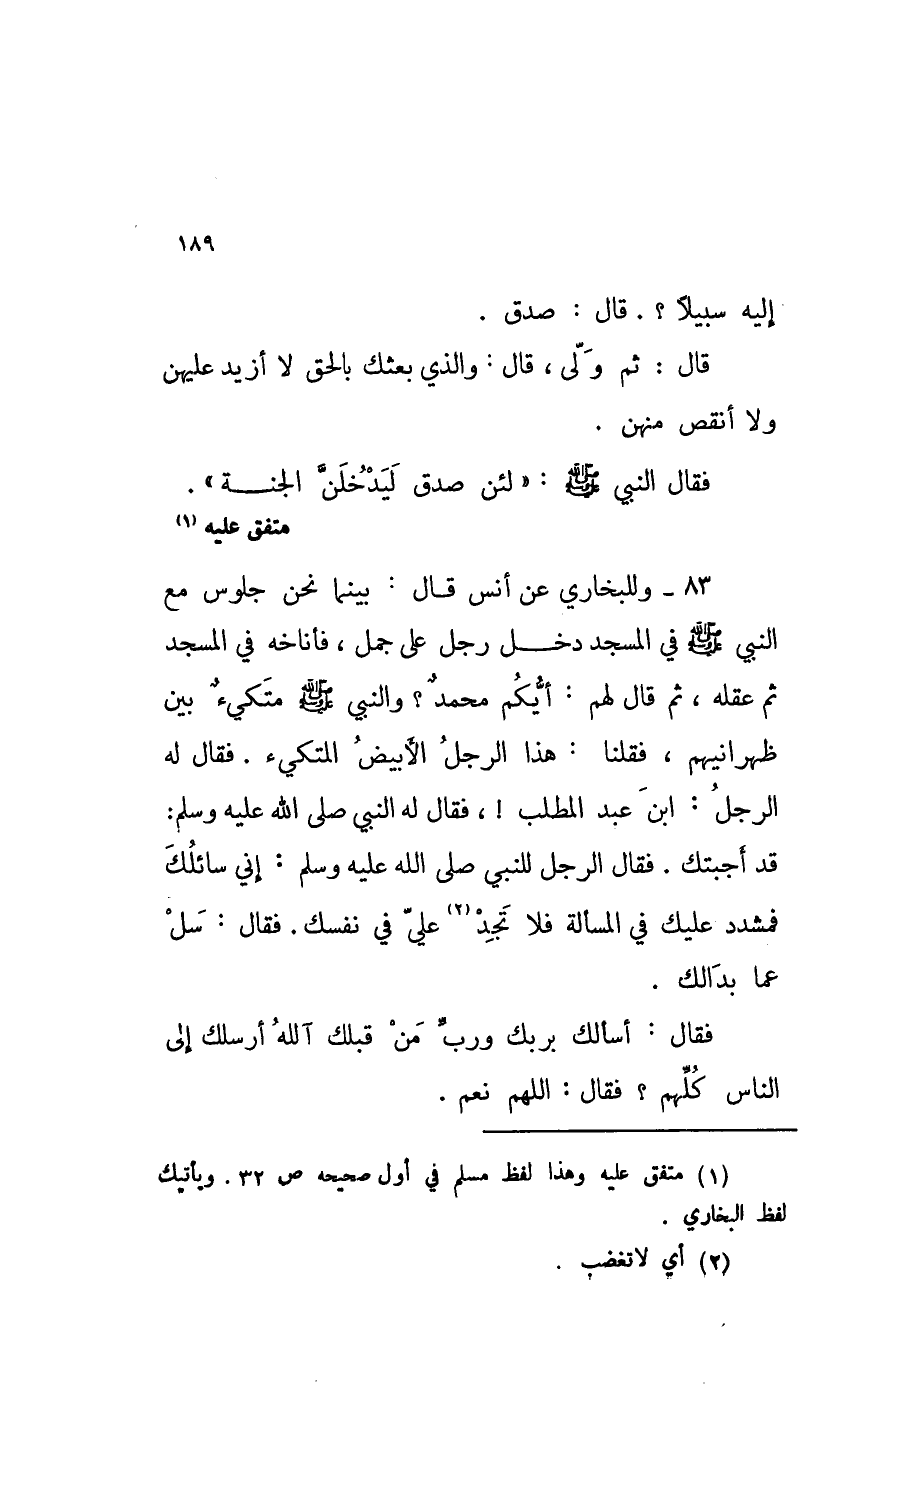 ١٨٩
إليه سبيلاً ؟ . قال : صدق .
قال : ثم وَلّى ، قال : والذي بعثك بالحق لا أزيد عليهن
ولا أنقص منهن .
فقال النبي ﷺ : « لئن صدق لَيَدْخُلَنَّ الجنــة » .
متفق عليه (١)
٨٣ ـ وللبخاري عن أنس قـال : بينما نحن جلوس مع
النبي ﷺ في المسجد دخــل رجل على جمل ، فأناخه في المسجد
ثم عقله ، ثم قال لهم : أيُّكُم محمدٌ ؟ والنبي ﷺ متَكيءٌ بين
ظهرانيهم ، فقلنا : هذا الرجلُ الأبيضُ المتكيء . فقال له
الرجلُ : ابنَ عبد المطلب ! ، فقال له النبي صلى الله عليه وسلم:
قد أجبتك . فقال الرجل للنبي صلى الله عليه وسلم : إني سائلُكَ
فمشدد عليك في المسألة فلا تَجِدْ(٢) عليّ في نفسك . فقال : سَلْ
عما بدَالك .
فقال : أسألك بربك وربِّ مَنْ قبلك آللهُ أرسلك إلى
الناس كُلِّهم ؟ فقال : اللهم نعم .
(١) متفق عليه وهذا لفظ مسلم في أول صحيحه ص ٣٢ . ويأتيك
لفظ البخاري .
(٢) أي لاتغضب .